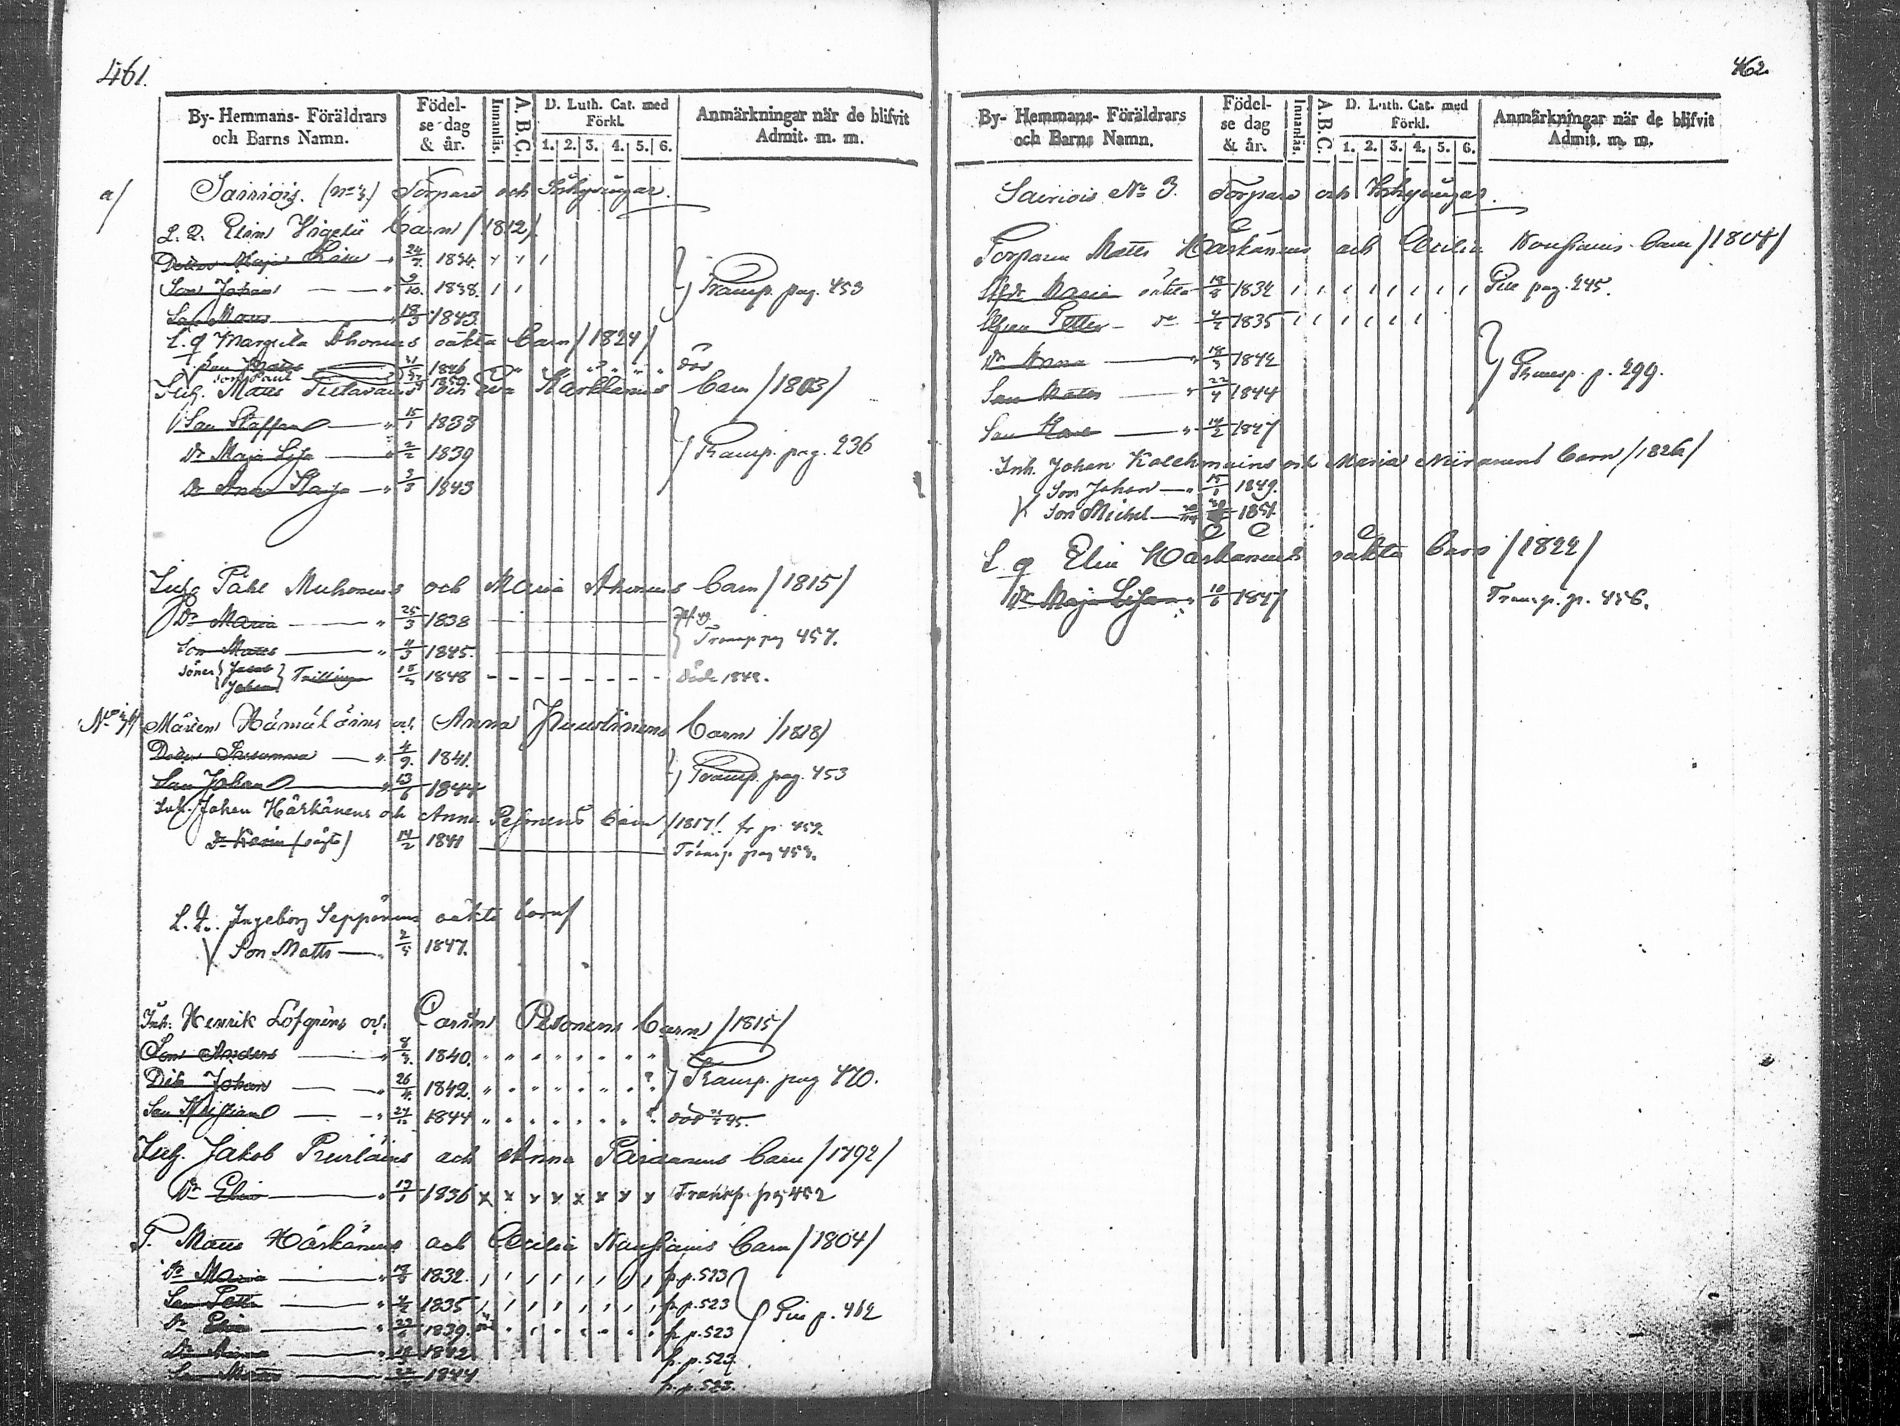 461.
By- Hemmans- Föräldrars och Barns Namn.
Födelse dag & år.
Innanläs.
A. B. C.
D. Luth. Cat. med Förkl.
1. 2. 3. 4. 5. 6.
Anmärkningar när de blifvit Admit. m. m.
a/
Torpare och Inhysingar.
L. Q. Elin barn /1812/
24/7 1834.
Son Johan 9/10 1838.
Transp. pag. 453
Son Mats 18/3 1843.
L. q Margreta Ahonens oäkta barn /1824/
1846 död
son Paul 1850.
Inh. Matts och Eva barn /1803/
Son Staffan 15/1 1833
Dr Maja Lisa 2/2 1839
Transp. pag. 236
Dr Anna Kaisa 3/3 1843
Inh. Påhl Muhonens och Maria Ahonens barn /1815/
Dr Maria 25/3 1838
Son Matts 4/3 1845.
Transp pag 457.
söner Jacob Johan Tvillingar 15/5 1848 döde 1848.
Mårten Hämäläins och Anna Puustinens barn /1818/
Dotter Susanna 4/9. 1841.
Son Johan 13/6 1844
Transp. pag. 453
Inh. Johan Härkänens och Anna Pesonens barn /1817/ fr p. 459.
Dr Karin 14/2 1841
Transp. pag 453.
L. Q. Ingeborg Seppänens oäkta barn/
Son Matts 2/5 1847.
Inh. Henrik Löfgréns och Carin Pesonens barn /1815/
Son Anders 8/3. 1840.
Johan 26/4. 1842.
Transp. pag 470.
Son Kristian 1844
död 45.
Inh. Jakob och Anna barn /1792/
Dr Elin 13/1 1836 x x x x x x x x Transp. pag 452
T. Matts Härkänens och Cecilia Nousiains barn /1804/
Dr Maria 18/8 1832. fr p. 523
Son Petter 4/2 1835 fr p. 523
Dr Elin 1839. fr p. 523
Vise p. 462
Dr Anna 18/3 1842 fr. p. 523
Son Matts 22/4 1844 fr. p. 523.
462.
By- Hemmans- Föräldrars och Barns Namn.
Födelse dag & år.
Innanläs.
A. B. C.
D. Luth. Cat. med Förkl.
1. 2. 3. 4. 5. 6.
Anmärkningar när de blifvit Admit. m. m.
No 3. Torpare och Inhysingar.
Torparen Matts Härkänens och Cecilia Nousiains barn /1804/
Maria oäkta 18/8 1832
pag. 245.
Petter do 4/2 1835
Dr Anna 18/3 1842
Transp. p. 299.
Son Matts 22/4 1844
Son 14/2 1847
Inh. Johan Kolehmains och Maria Niiranens barn /1826/
Son Johan 15/1 1849.
Son Michel 1851.
L. q Elin Härkänens oäkta barn /1822/
Dr Maja Lisa 10/6 1847
Transp. p. 456.